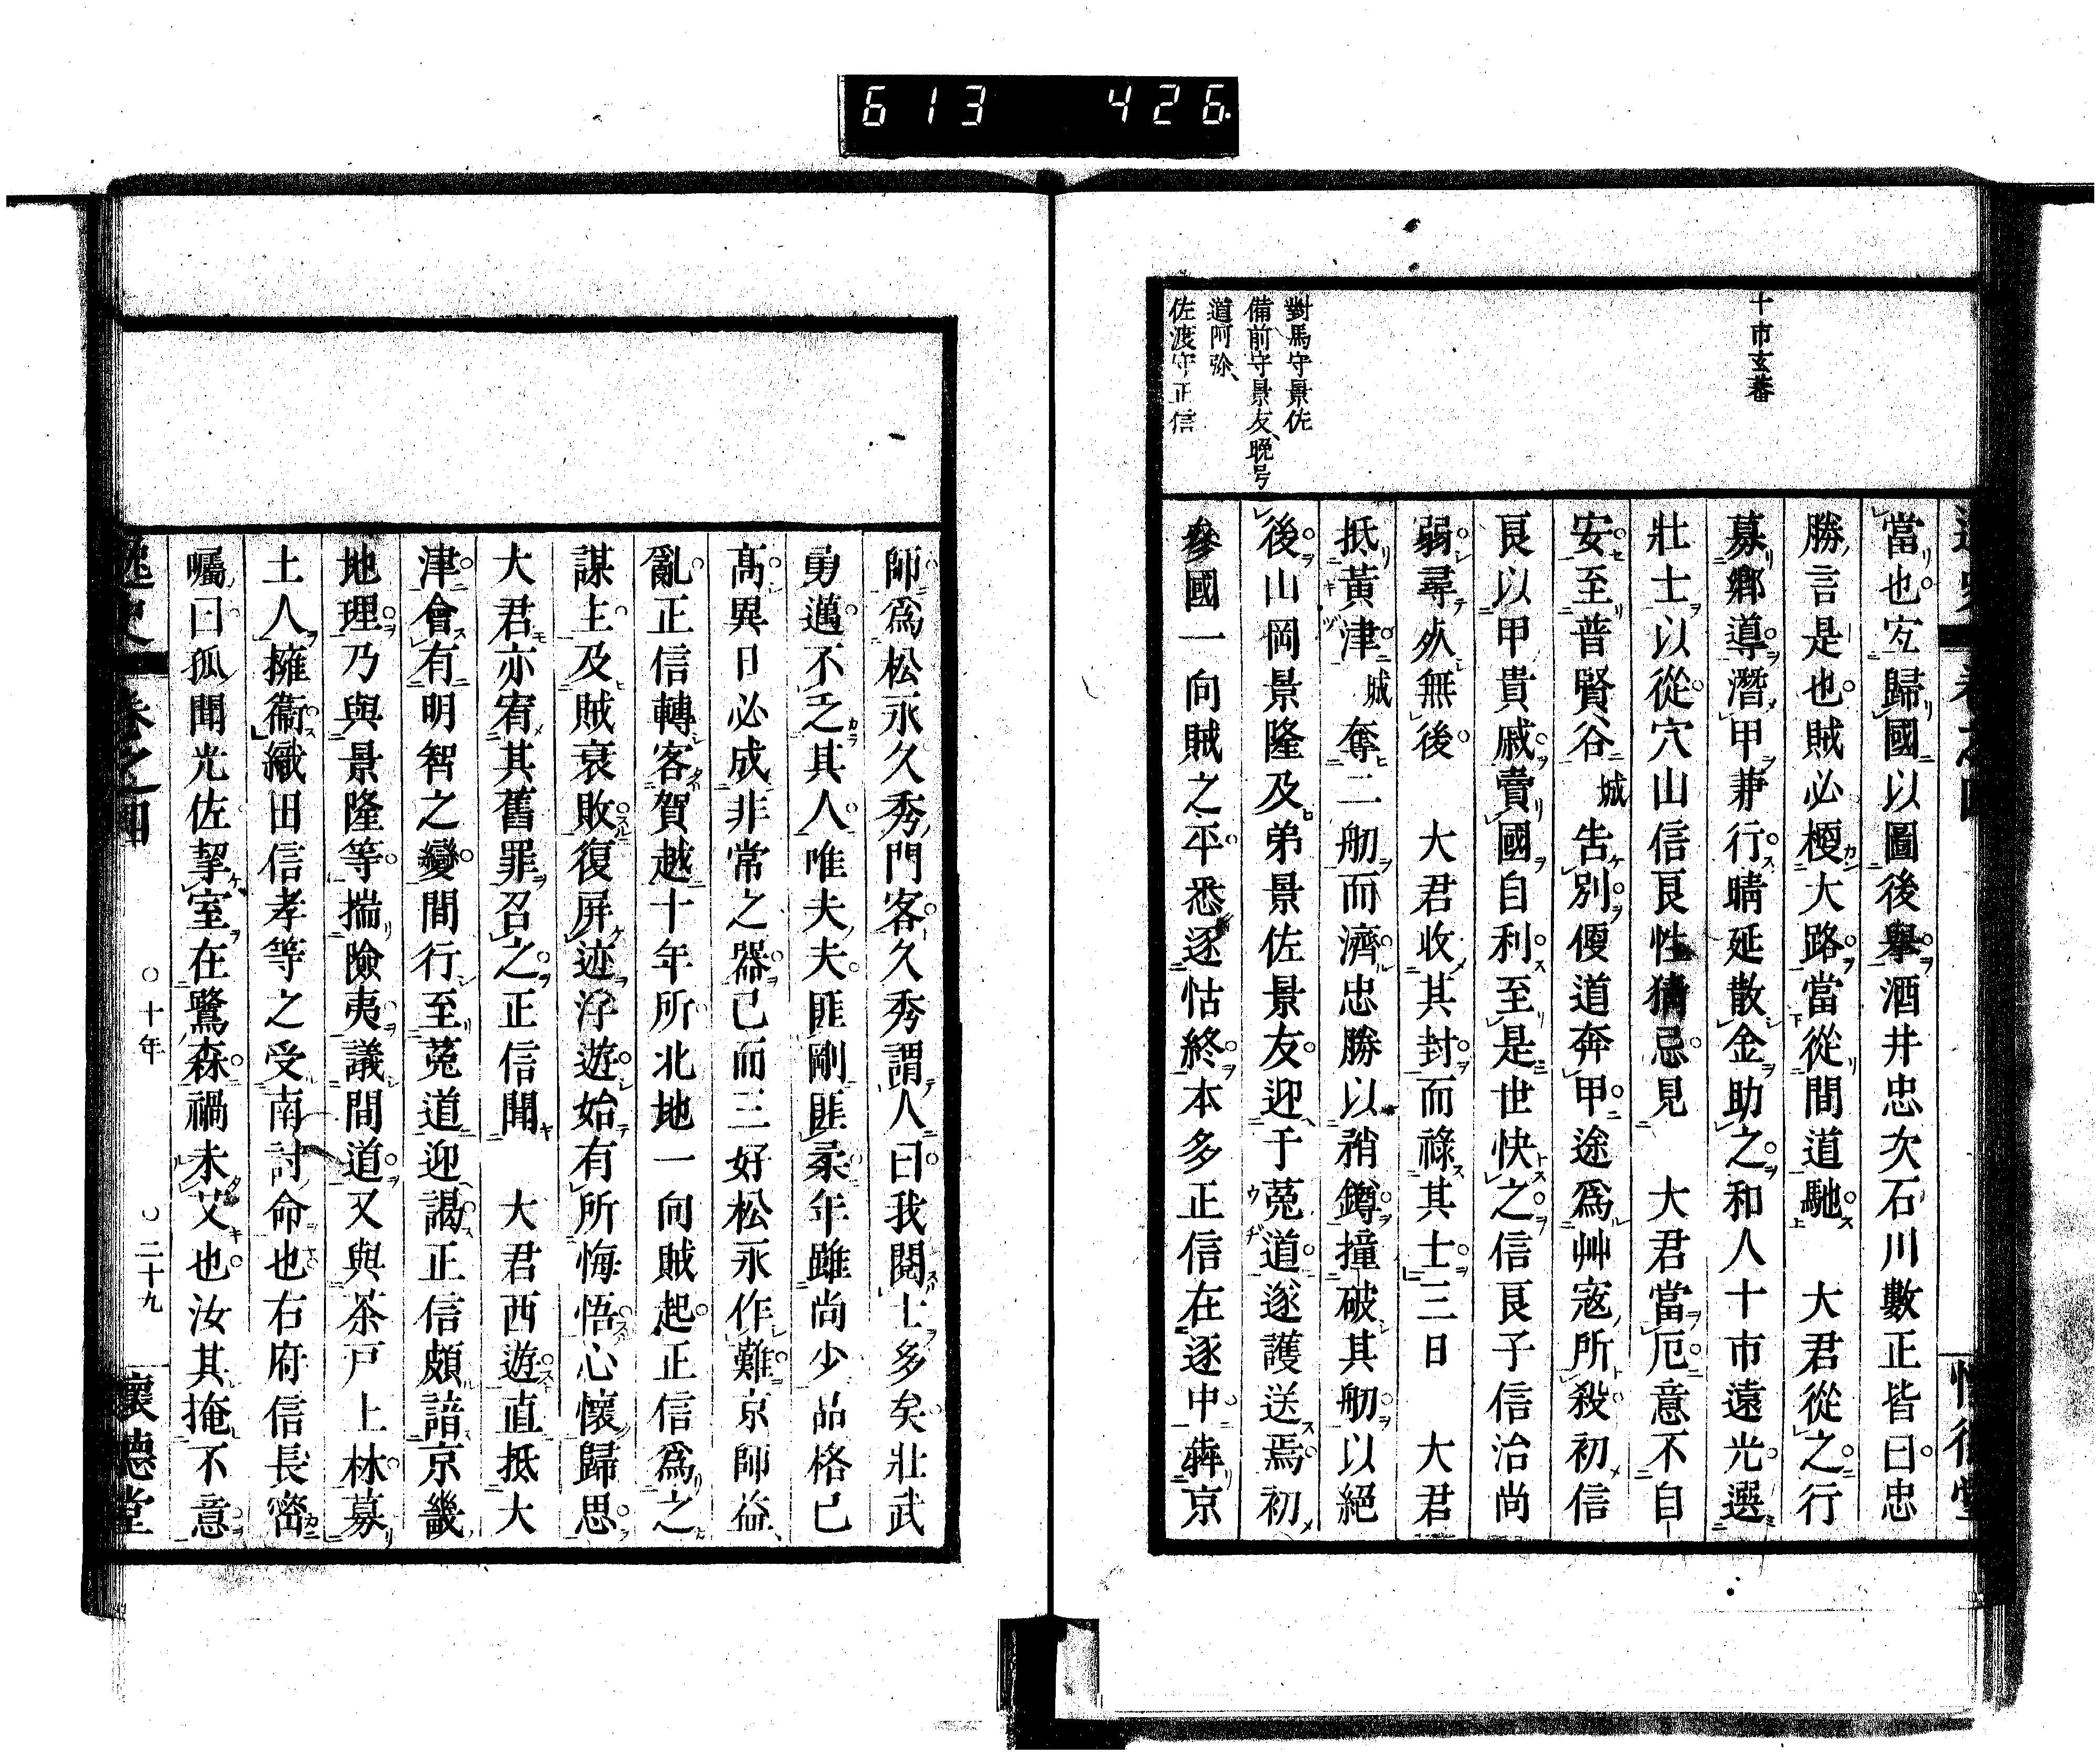 613 426
十市玄蕃
對馬守景佐
備前守景友、晩号
道阿弥、
佐渡守正信
當也宐歸國以圖後擧酒井忠次石川數正皆曰忠
勝言是也賊必梗大路當從間道馳　大君從之行
募鄉導潛甲兼行晴延散金助之和人十市遠光選
壯士以從穴山信良性猜忌見　大君當厄意不自
安至普賢谷城告別便道奔甲途爲艸寇所殺初信
良以甲貴戚賣國自利至是世快之信良子信治尚
弱尋殀無後　大君收其封而祿其士三日　大君
抵黃津城奪二舠而濟忠勝以矟鐏撞破其舠以絕
後山岡景隆及弟景佐景友迎于菟道遂護送焉初
參國一向賊之平悉逐怙終本多正信在逐中犇京
師爲松永久秀門客久秀謂人曰我閱士多矣壯武
勇邁不乏其人唯夫夫匪剛匪柔年雖尚少品格已
高異日必成非常之器已而三好松永作難京師益
亂正信轉客賀越十年所北地一向賊起正信爲之
謀主及賊衰敗復屏迹浮遊始有所悔悟心懷歸思
大君亦宥其舊罪召之正信聞　大君西遊直抵大
津會有明智之變間行至菟道迎謁正信頗諳京畿
地理乃與景隆等揣險夷議間道又與茶戸上林募
土人擁衞織田信孝等之受南討命也右府信長密
囑曰孤聞光佐挈室在鷺森禍未艾也汝其掩不意
逸史　卷之四　○十年　○二十九　懷德堂